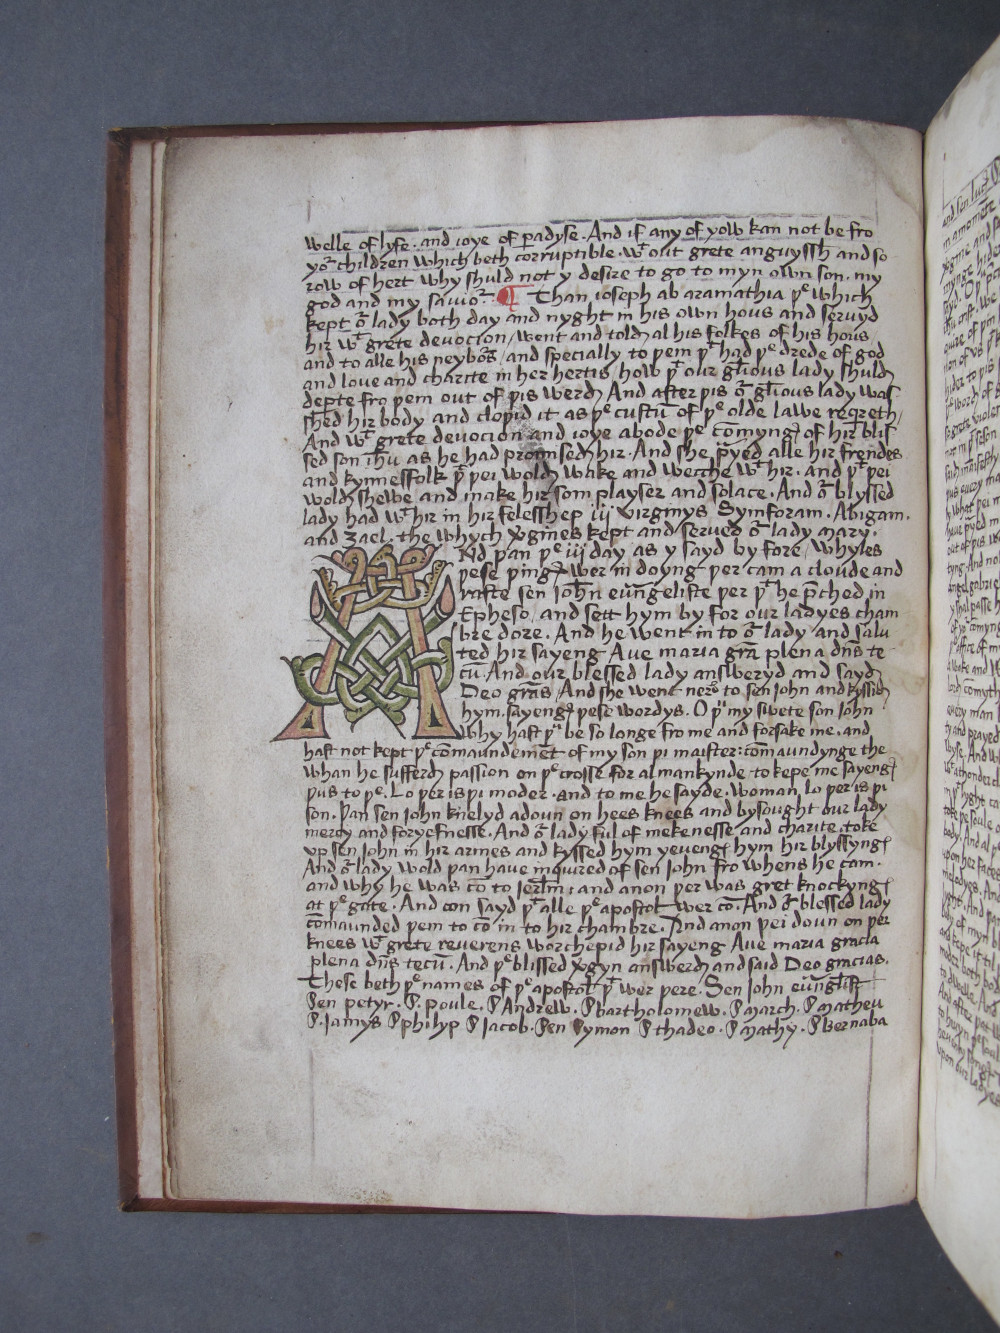 welle of lyfe · and ioye of padyse · And if any of yow kan not be fro
yor children which beth corruptible · wt out grete anguyssh and so
row of hert why shuld not y desire to go to myn own son · my
god and my savior · ¶ Than ioseph ab aramathia þe which
kept or lady both day and nyght in his own hous and servyd
hir wt grete devocion / went and told al his folkes of his hous
and to alle his neybors / and specially to þem þt had þe drede of god
and love and charite in her hertis / how þt our glious lady shuld
depte fro þem out of þis werd And after þis or glious lady was
shed hir body and cloþid it as þe custū of þe olde lawe reqreth /
And wt grete devocion and ioye abode þe cōmyng of hir blis
sed son ihu as he had promised hir · And she pyed alle hir frendes
and kynnesfolk þt þei wold wake and wecche wt hir · and þt þei
wold shewe and make hir som playser and solace · And or blyssed
lady had wt hir in hir felesshep iij virginys Symforam · Abigam ·
and zael · the whych vgines kept and served or lady mary ·
ANd þan þe iij day as y sayd by fore / whyles
þese þing wer in doyng þer cam a cloude and
rafte sen iohn eungeliste þer þt he pched in
Epheso / and sett hym by for our ladyes cham
bre dore · And he went in to or lady and salu
ted hir sayeng Ave maria gra plena dns te
cū · And our blessed lady answeryd and sayd
Deo gras / And she went ner to sen iohn and kyssid
hym · sayeng þese wordys · O þu my swete son iohn
why hast þu be so longe fro me and forsake me · and
hast not kept þe cōmaundemēt of my son þi maister : cōmaundynge the
whan he sufferd passion on þe crosse for al mankynde to kepe me sayeng
þus to þe · Lo þer is þi moder · and to me he sayde · woman / lo þer is þi
son · Þan sen iohn knelyd adoun on hees knees and bysought our lady
mercy and foryefnesse · And or lady ful of mekenesse and charite · toke
vp sen iohn in hir armes and kyssed hym yeveng hym hir blyssyng
And or lady wold þan have inquired of sen iohn fro whens he cam ·
and why he was cō to ierlm : and anon þer was gret knockyng
at þe gate · And con sayd þt alle þe apostol wer cō · And or blessed lady
cōmaunded þem to cō in to hir chambre · And anon þei doun on þer
knees wt grete reverens worchepid hir sayeng Ave maria gracia
plena dns tecū · And þe blissed vgyn answerd and said Deo gracias ·
These beth þe names of þe apostol þt wer þere · Sen iohn eunglist
Sen petyr · S · poule · S Andrew · S bartholomew · S march · S matheu
S · iamys S philyp S iacob · Sen Symon S thadeo · S mathy · S bernaba